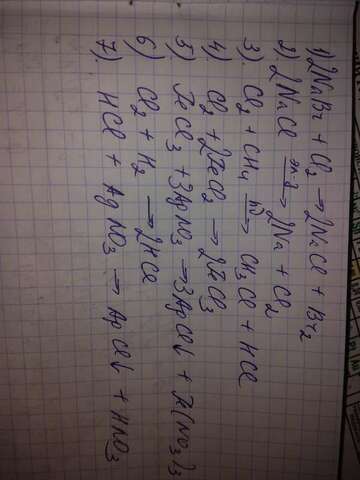 1) 2NaBr + Cl₂ → 2NaCl + Br₂
2) 2NaCl эл-з→ 2Na + Cl₂
3) Cl₂ + CH₄ hν→ CH₃Cl + HCl
4) Cl₂ + 2FeCl₂ → 2FeCl₃
5) FeCl₃ + 3AgNO₃ → 3AgCl↓ + Fe(NO₃)₃
6) Cl₂ + H₂ → 2HCl
7) HCl + AgNO₃ → AgCl↓ + HNO₃